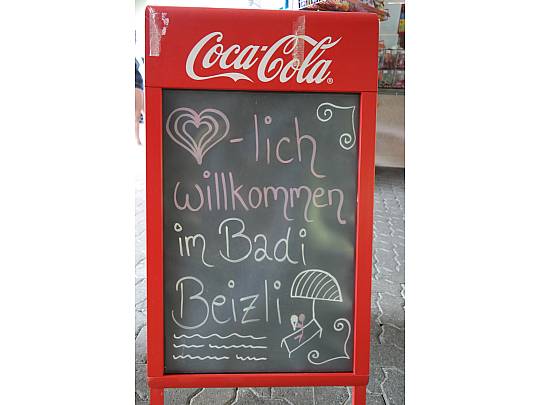 Coca-Cola
-lich
willkommen
im Badi
Beizli